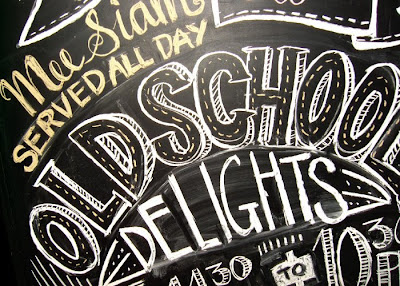 Mee Siam
SERVED ALL DAY
OLD SCHOOL
DELIGHTS
11:30 TO 10:30